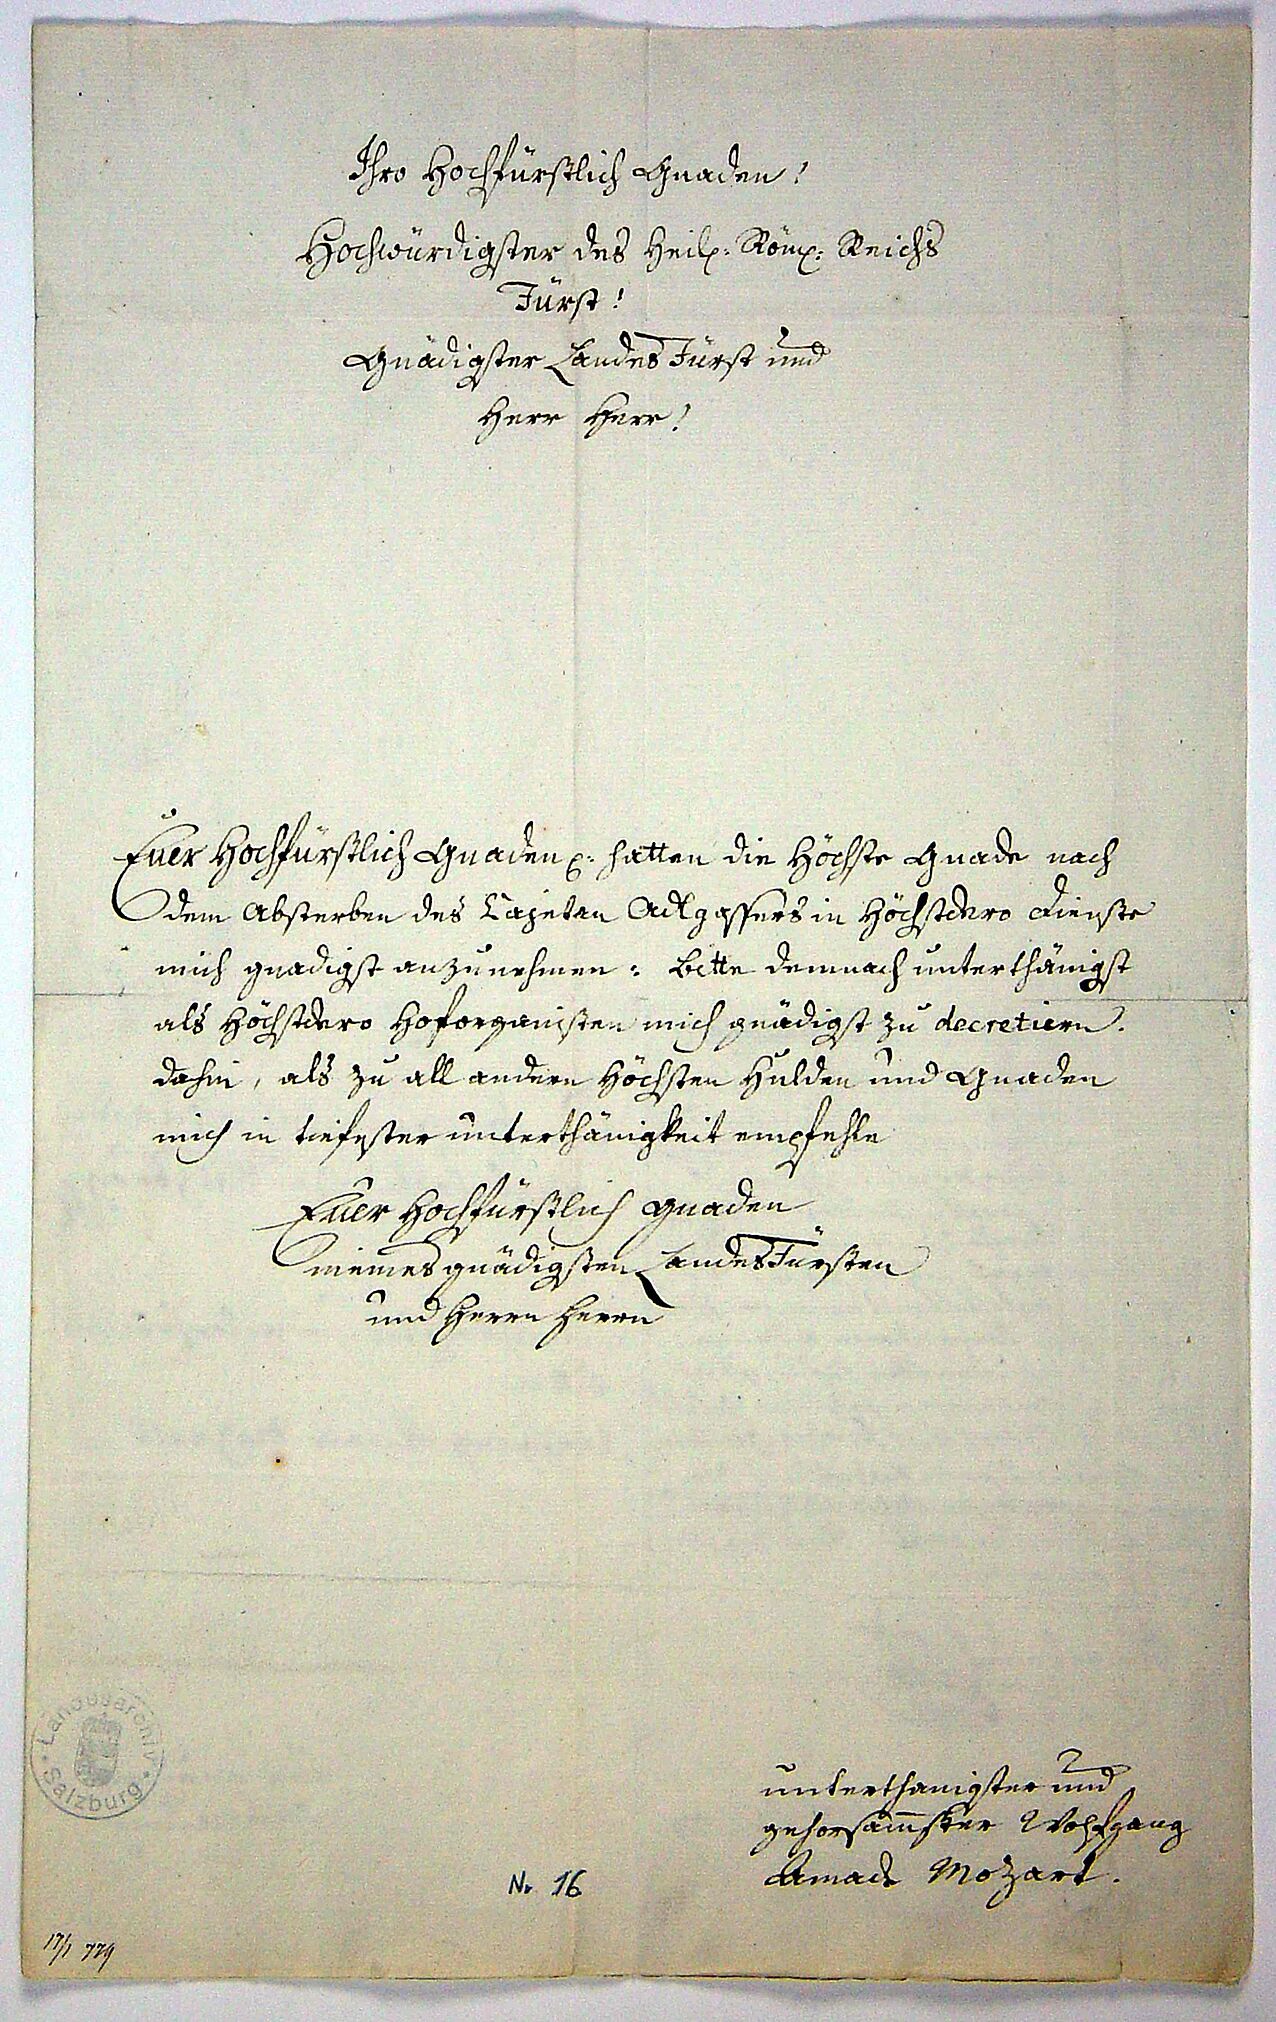 Ihro Hochfürstlich Gnaden!
Hochwürdigster des Heil: Röm: Reichs
Fürst!
Gnädigster Landes Fürst und
Herr Herr!
Euer Hochfürstlich Gnaden hatten die Höchste Gnade nach
dem Absterben des Cajetan Adlgassers in Höchstdero Dienste
mich gnädigst anzunehmen: bitte demnach unterthänigst
als Höchstdero Hoforganisten mich gnädigst zu decretiern.
dahin, als zu all andern Höchsten Hulden und Gnaden
mich in tiefester unterthänigkeit empfehle
Euer Hochfürstlich Gnaden
meines gnädigsten Landes Fürsten
und Herrn Herrn
unterthänigster und
gehorsammster Wolfgang
Amadè Mozart.
Nr 16
17/1 779
Landesarchiv
Salzburg